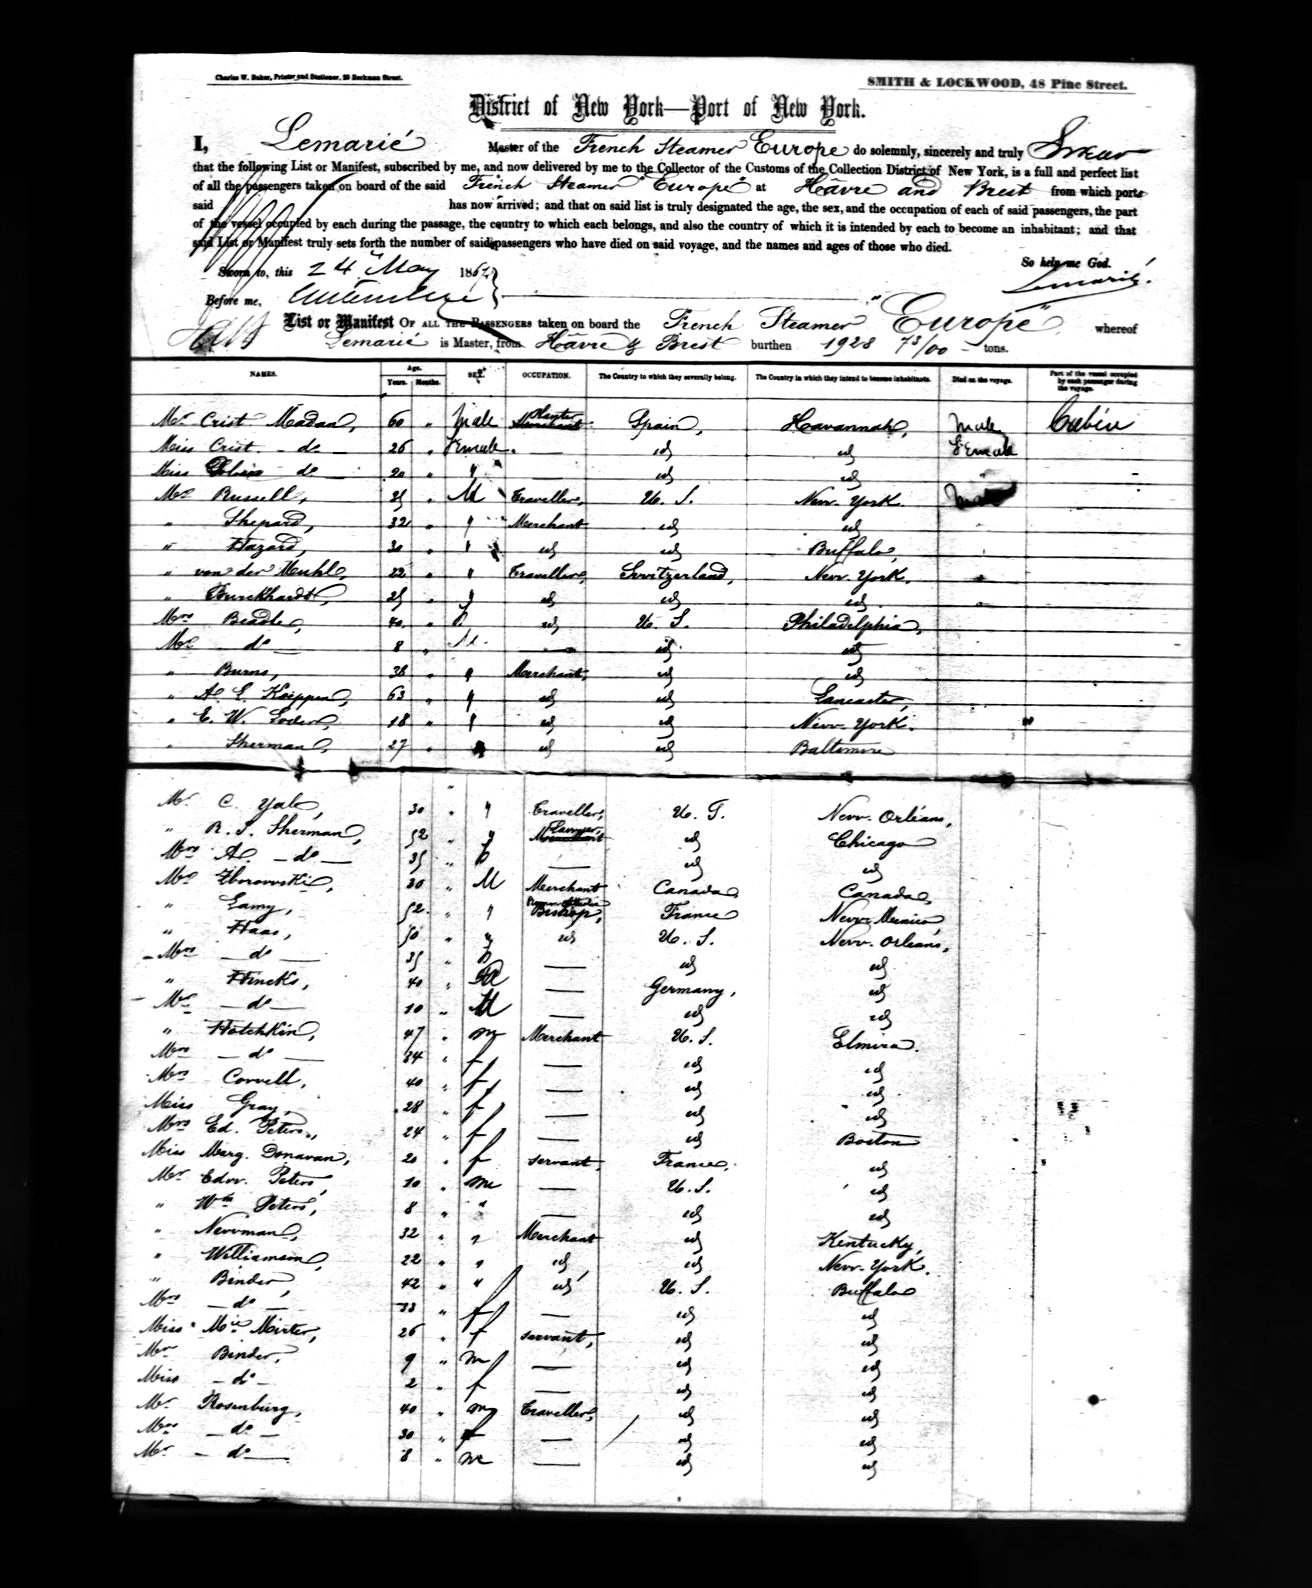 Charles W. Baker, Printer and Stationer, 29 Beekman Street.
SMITH & LOCKWOOD, 48 Pine Street.
District of New York—Port of New York.
I, Lemarié Master of the French Steamer Europe do solemnly, sincerely and truly Swear
that the following List or Manifest, subscribed by me, and now delivered by me to the Collector of the Customs of the Collection District of New York, is a full and perfect list
of all the passengers taken on board of the said French Steamer "Europe" at Havre and Brest from which ports
said has now arrived; and that on said list is truly designated the age, the sex, and the occupation of each of said passengers, the part
of the vessel occupied by each during the passage, the country to which each belongs, and also the country of which it is intended by each to become an inhabitant; and that
said List or Manifest truly sets forth the number of said passengers who have died on said voyage, and the names and ages of those who died.
So help me God.
Sworn to, this 24 May 186
Lemarié.
Before me,
List or Manifest OF ALL THE PASSENGERS taken on board the French Steamer "Europe" whereof
Lemarié is Master, from Havre & Brest burthen 1928 73/00 tons.
NAMES. Age. Years. Months. SEX. OCCUPATION. The Country to which they severally belong. The Country in which they intend to become inhabitants. Died on the voyage. Part of the vessel occupied by each passenger during the voyage.
Mr Crist Madan, 60 " Male Planter Merchant Spain, Havannah, Male Cabin
Miss Crist. - do - 26 " Female. id id Female
Miss - do - 20 " " id id
Mr Russell, 25 " M Traveller, U. S. New-York.
" Shepard, 32 " " Merchant id id
" Hazard, 30 " " id id Buffalo,
" von der Muhl, 22 " " Traveller, Switzerland, New-York,
" Burckhardt, 25 " " id id id
Mrs Beadle, 40 " id U. S. Philadelphia,
Mr do 8 " M. — id id
" Burns, 38 " " Merchant, id id
" 63 " " id id Lancaster,
" E. W. 18 " " id id New-York.
" Sherman, 27 " id id Baltimore
Mr C. Yale, 30 " " Traveller, U. S. New-Orléans,
" R. S. Sherman, 52 " " Lawyer, Merchant id Chicago
Mrs A. - do - 35 " — id id
Mr Zborowski, 30 " M Merchant Canada, Canada,
" Lamy, 52 " " Bishop, France New-Mexico,
" Haas, 50 " " id U. S. New-Orléans,
Mrs - do - 35 " — id id
" Hincks, 40 " — Germany, id
Mr - do - 10 " M — id id
" Hotchkin, 47 " m Merchant U. S. Elmira.
Mrs - do - 34 " f — id id
Mrs Corvell, 40 " f — id id
Miss Gray, 28 " f — id id
Mrs Ed. Peters, 24 " f — id Boston
Miss Marg. Donavan, 20 " f servant, France, id
Mr Edw. Peters, 10 " m — U. S. id
" Wm Peters, 8 " " — id id
" Newman, 32 " " Merchant id Kentucky,
" Williamson, 22 " " id id New-York.
" Binder, 42 " " id U. S. Buffalo
Mrs - do - 33 " f — id id
Miss Mie Mister, 26 " f servant, id id
Mr Binder, 9 " m — id id
Miss - do - 2 " f — id id
Mr Rosenburg, 40 " m Traveller, id id
Mrs - do - 30 " f — id id
Mr - do - 8 " m — id id